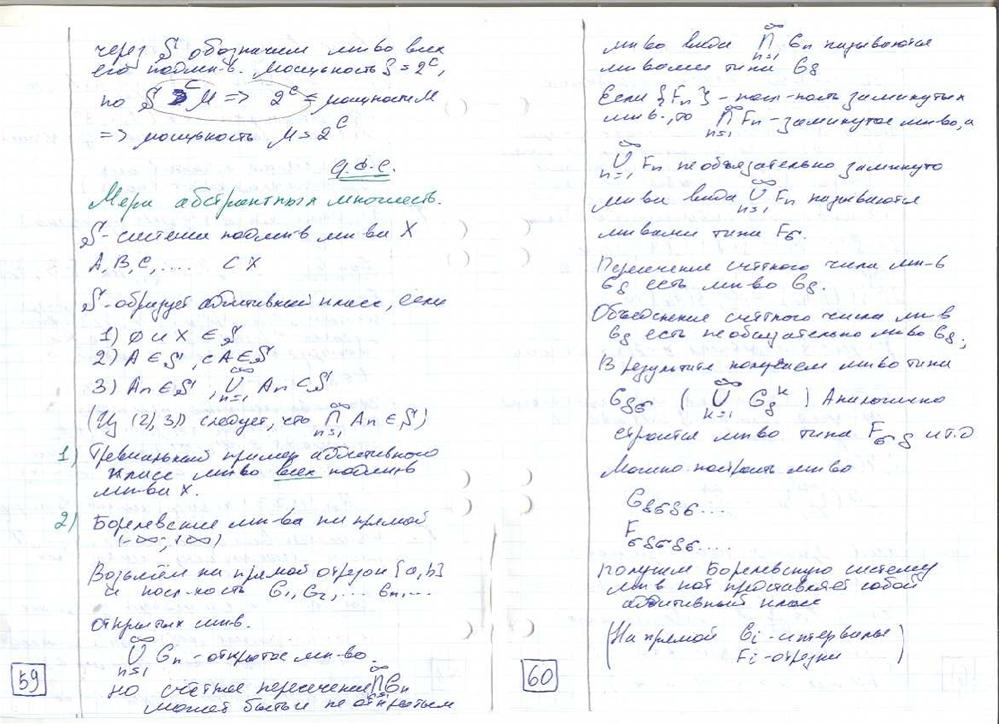 через S обозначим мн-во всех
его подмн-в. Мощность S = 2^c,
но S ⊂ M => 2^c ≤ мощности M
=> мощность M = 2^c
ч.т.д.
Мера абстрактных множеств.
S - система подмн-в мн-ва X
A, B, C, .... ⊂ X
S - образует аддитивный класс, если
1) ∅ и X ∈ S
2) A ∈ S, cA ∈ S
3) An ∈ S, ∞ ∪ n=1 An ∈ S
(Из (2, 3) следует, что ∞ ∩ n=1 An ∈ S)
1) Тревиальный пример аддитивного
класса мн-во всех подмн-в
мн-ва X.
2) Борелевские мн-ва на прямой
(-∞; +∞)
Возьмём на прямой отрезок [a, b]
и посл-ность G1, G2, ... Gn, ...
открытых мн-в.
∞ ∪ n=1 Gn - открытое мн-во.
но счётное пересечение ∞ ∩ n=1 Gn
может быть и не открытым
59
мн-во вида ∞ ∩ n=1 Gn называются
мн-вами типа Gδ
Если {Fn} - посл-ность замкнутых
мн-в, то ∞ ∩ n=1 Fn - замкнутое мн-во, а
∞ ∪ n=1 Fn необязательно замкнуто
мн-ва вида ∞ ∪ n=1 Fn называются
мн-вами типа Fσ.
Пересечение счётного числа мн-в
Gδ есть мн-во Gδ.
Объединение счётного числа мн-в
Gδ есть необязательно мн-во Gδ;
В результате получаем мн-во типа
Gδσ ( ∞ ∪ k=1 Gδ^k ) Аналогично
строится мн-во типа Fσδ и т.д
Можно построить мн-во
Gδσδσ...
Fσδσδσ...
получим Борелевскую систему
мн-в кот представляет собой
аддитивный класс
(На прямой Gi - интервалы
Fi - отрезки)
60